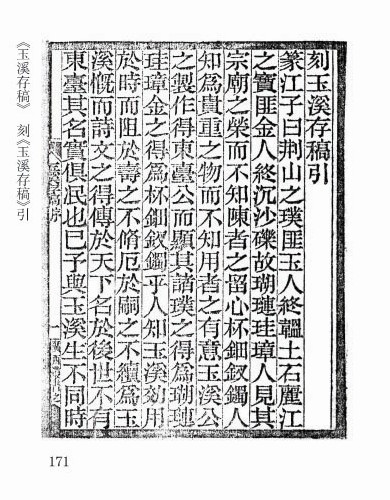 刻玉溪存稿引
篆江子曰荆山之璞匪玉人終韞土石麗江
之寶匪金人終沉沙礫故瑚璉珪璋人見其
宗廟之榮而不知陳者之留心杯鈿釵鐲人
知為貴重之物而不知用者之有意玉溪公
之製作得東臺公而顯其諸璞之得為瑚璉
珪璋金之得為杯鈿釵鐲乎人知玉溪効用
於時而阻於壽之不脩厄於嗣之不續為玉
溪慨而詩文之得傳於天下名於後世不有
東臺其名實俱泯也巳予與玉溪生不同時
《玉溪存稿》 刻《玉溪存稿》引
171